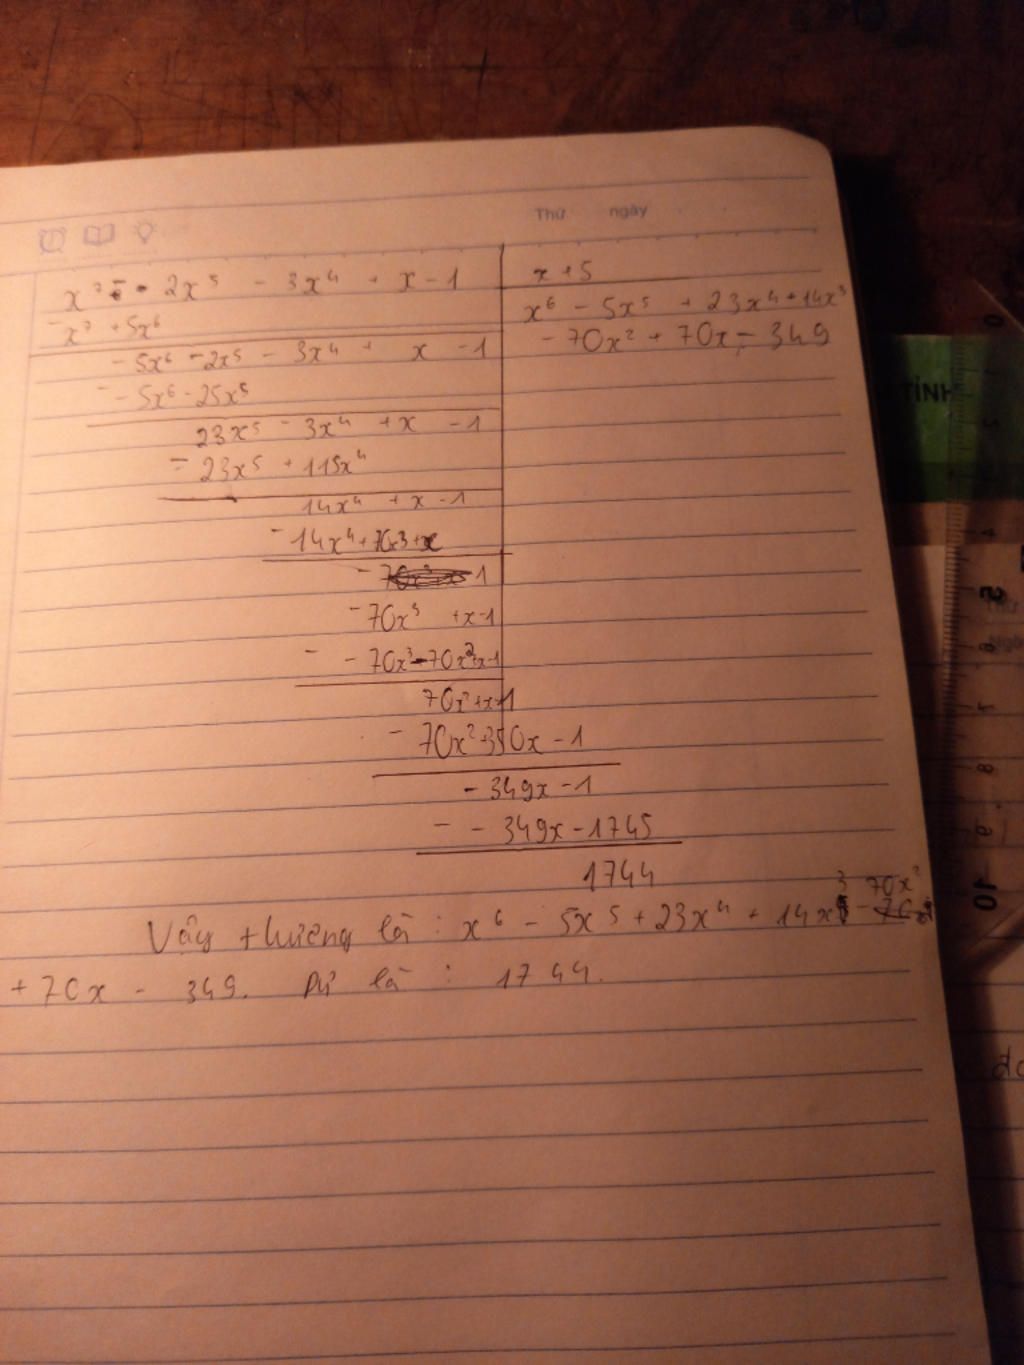 Thứ ngày
x⁷ - 2x⁵ - 3x⁴ + x - 1 x + 5
- x⁷ + 5x⁶ x⁶ - 5x⁵ + 23x⁴ + 14x³
- 5x⁶ - 2x⁵ - 3x⁴ + x - 1 - 70x² + 70x - 349
- - 5x⁶ - 25x⁵
23x⁵ - 3x⁴ + x - 1
- 23x⁵ + 115x⁴
14x⁴ + x - 1
- 14x⁴ + 70x3 + x
- 70x³ + x - 1
- - 70x³ - 70x² + x - 1
70x² + x - 1
- 70x² + 350x - 1
- 349x - 1
- - 349x - 1745
1744
Vậy thương là : x⁶ - 5x⁵ + 23x⁴ + 14x³ - 70x²
+ 70x - 349. Dư là : 1744.
TÍNH
0
4
5
6
7
8
9
10